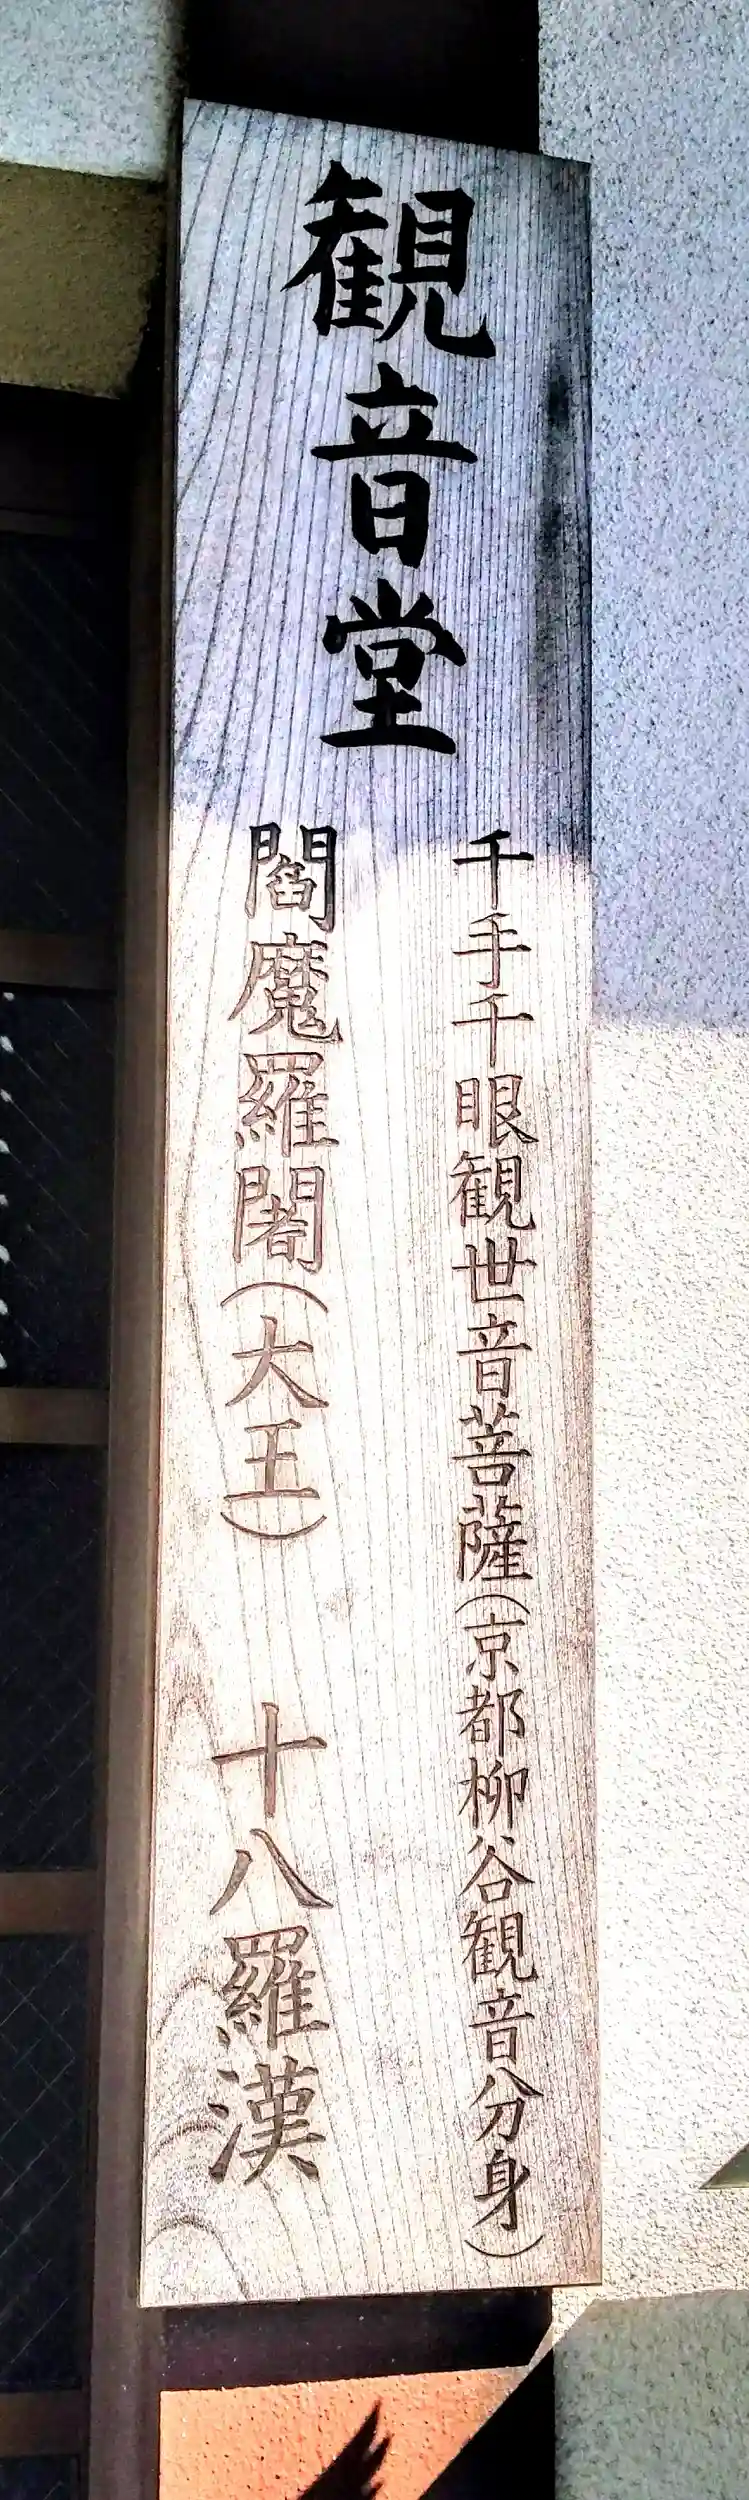 観音堂
千手千眼観世音菩薩(京都柳谷観音分身)
閻魔羅闍(大王) 十八羅漢